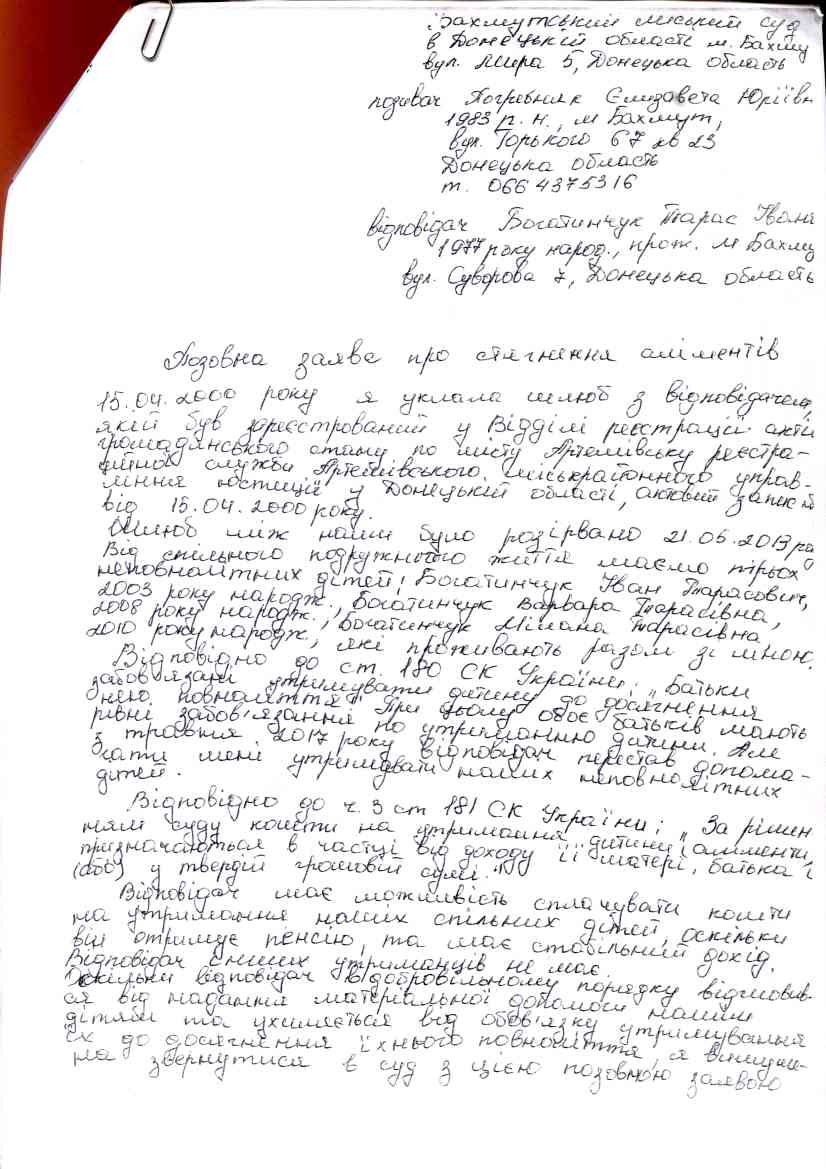 Бахмутський міський суд
в Донецькій області м. Бахму
вул. Мира 5, Донецька область
позивач Погребняк Єлизавета Юріївн
1983 р. н., м Бахмут,
вул. Горького 67 кв 23
Донецька область
т. 066 4375316
відповідач Богатинчук Тарас Івани
1977 року народ., прож. м Бахму
вул. Суворова 7, Донецька область
Позовна заява про стягнення аліментів
15.04.2000 року я уклала шлюб з відповідачем,
якій був зареєстрований у Відділі реєстрації акті
громадянського стану по місту Артемівську реєстра-
ційної служби Артемівського міськрайонного управ-
ління юстиції у Донецькій області, актовий запис №
від 15.04.2000 року.
Шлюб між нами було розірвано 21.06.2013 ро
Від спільного подружнього життя маємо трьох
неповнолітних дітей: Богатинчук Іван Тарасович,
2003 року народж., Богатинчук Варвара Тарасівна,
2008 року народж., Богатинчук Мілана Тарасівна
2010 року народж., які проживають разом зі мною.
Відповідно до ст. 180 СК України: „Батьки
забов'язані утримувати дитину до досягнення
нею повноліття". При цьому обоє батьків мають
рівні забов'язання по утриманню дитини. Але
з травня 2017 року відповідач перестав допома-
гати мені утримувати наших неповнолітних
дітей.
Відповідно до ч. 3 ст 181 СК України: „За рішен
ням суду кошти на утримання дитини (аліменти)
призначаються в частці від доходу її матері, батька і
(або) у твердій грошовій сумі."
Відповідач має можливість сплачувати кошти
на утримання наших спільних дітей, оскільки
він отримує пенсію, та має стабільний дохід.
Відповідач інших утриманців не має.
Оскільки відповідач в добровільному порядку відмовив-
ся від надання матеріальної допомоги нашим
дітям та ухиляється від обов'язку утримування
їх до досягнення їхнього повноліття, я вимуше-
на звернутися в суд з цією позовною заявою